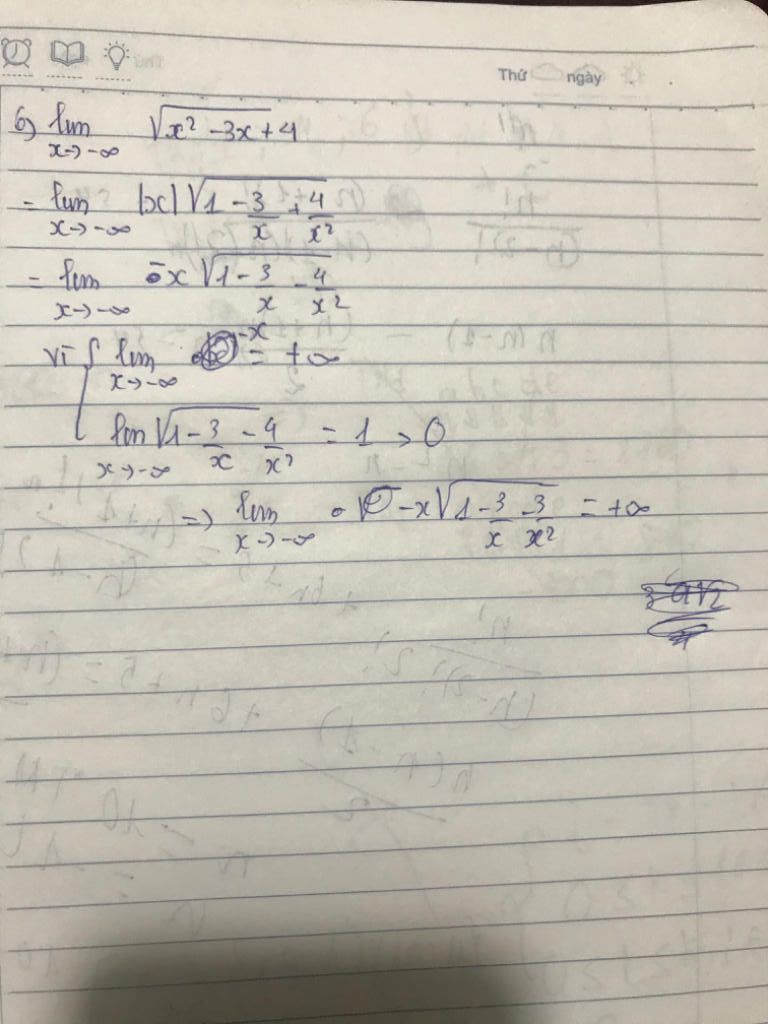 Thứ ngày
6) lim x→-∞ √(x² - 3x + 4)
= lim x→-∞ |x| √(1 - 3/x + 4/x²)
= lim x→-∞ -x √(1 - 3/x - 4/x²)
Vì { lim x→-∞ -x = +∞
lim x→-∞ √(1 - 3/x - 4/x²) = 1 > 0
=> lim x→-∞ -x √(1 - 3/x - 3/x²) = +∞